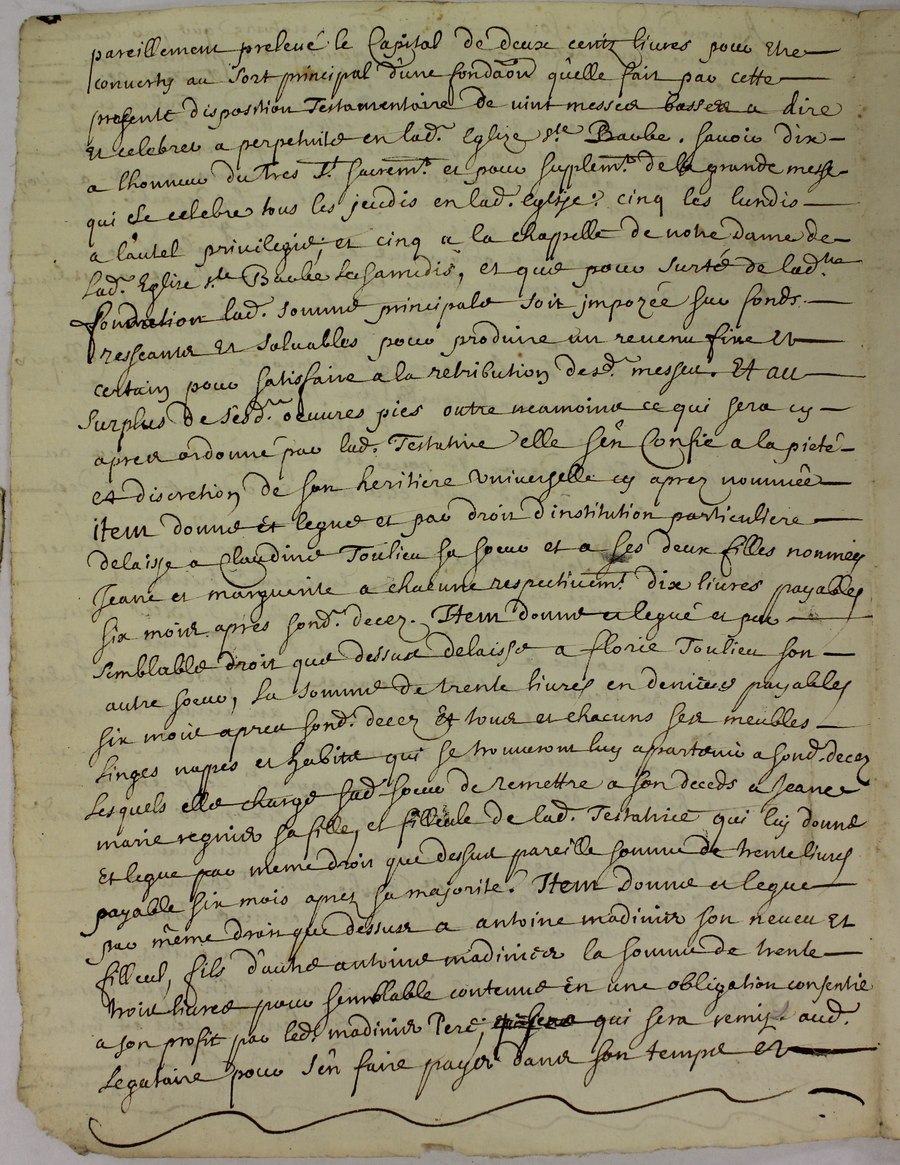 pareillement prelevé le Capital de deux centz livres pour etre
converty au sort principal d'une fondaõn qu'elle fait par cette
presente disposition Testamentaire de vint messes basses a dire
Et celebrer a perpetuité en lad. Eglise s.te Barbe. savoir dix
a lhonneur du tres s.t sacrem.t et pour suplem.t de la grande messe
qui se celebre tous les jeudis en lad. eglise; cinq les lundis
a l'autel privilegié; et cinq a la chappelle de notre dame de
Lad. Eglise s.te Barbe les samedis, et que pour surté de lad.tte
fondation lad. somme principale soit impozée sur fonds
resseants Et solvables pour produire un revenu fixe Et
certain pour satisfaire a la retribution desd. messes. Et au
surplus de sesd. oeuvres pies outre neamoins ce qui sera cy
apres ordonné par lad. Testatrice elle s'en Confie a la pieté
et discretion de son heritiere Universelle cy aprez nommée
item donne Et legue et par droit d'institution particuliere
delaisse a Claudine Toulieu sa soeur et a ses deux filles nommées
Jeane et marguerite a chacune respectivem.t dix livres payables
six mois apres sond. decez. Item donne et legue et par
semblable droit que dessus delaisse a florie Toulieu son
autre soeur, La somme de trente livres en deniers payables
six mois apres sond. decez Et tous et chacuns ses meubles
Linges nappes et habits qui se trouveront luy apartenir a sond. decez
Lesquels elle charge sad. soeur de remettre a son deceds a Jeane
marie regnier sa fille, et filleule de lad. Testatrice qui luy donne
Et legue par meme droit que dessus pareille somme de trente livres
payable six mois aprez sa majorité. Item donne et legue
par même droit que dessus a antoine madinier son neveu Et
filleul, fils d'autre antoine madinier la somme de trente
trois livres pour semblable contenue En une obligation consentie
a son profit par led. madinier Pere; qui sera remize aud.
Legataire pour s'en faire payer dans son temps Et